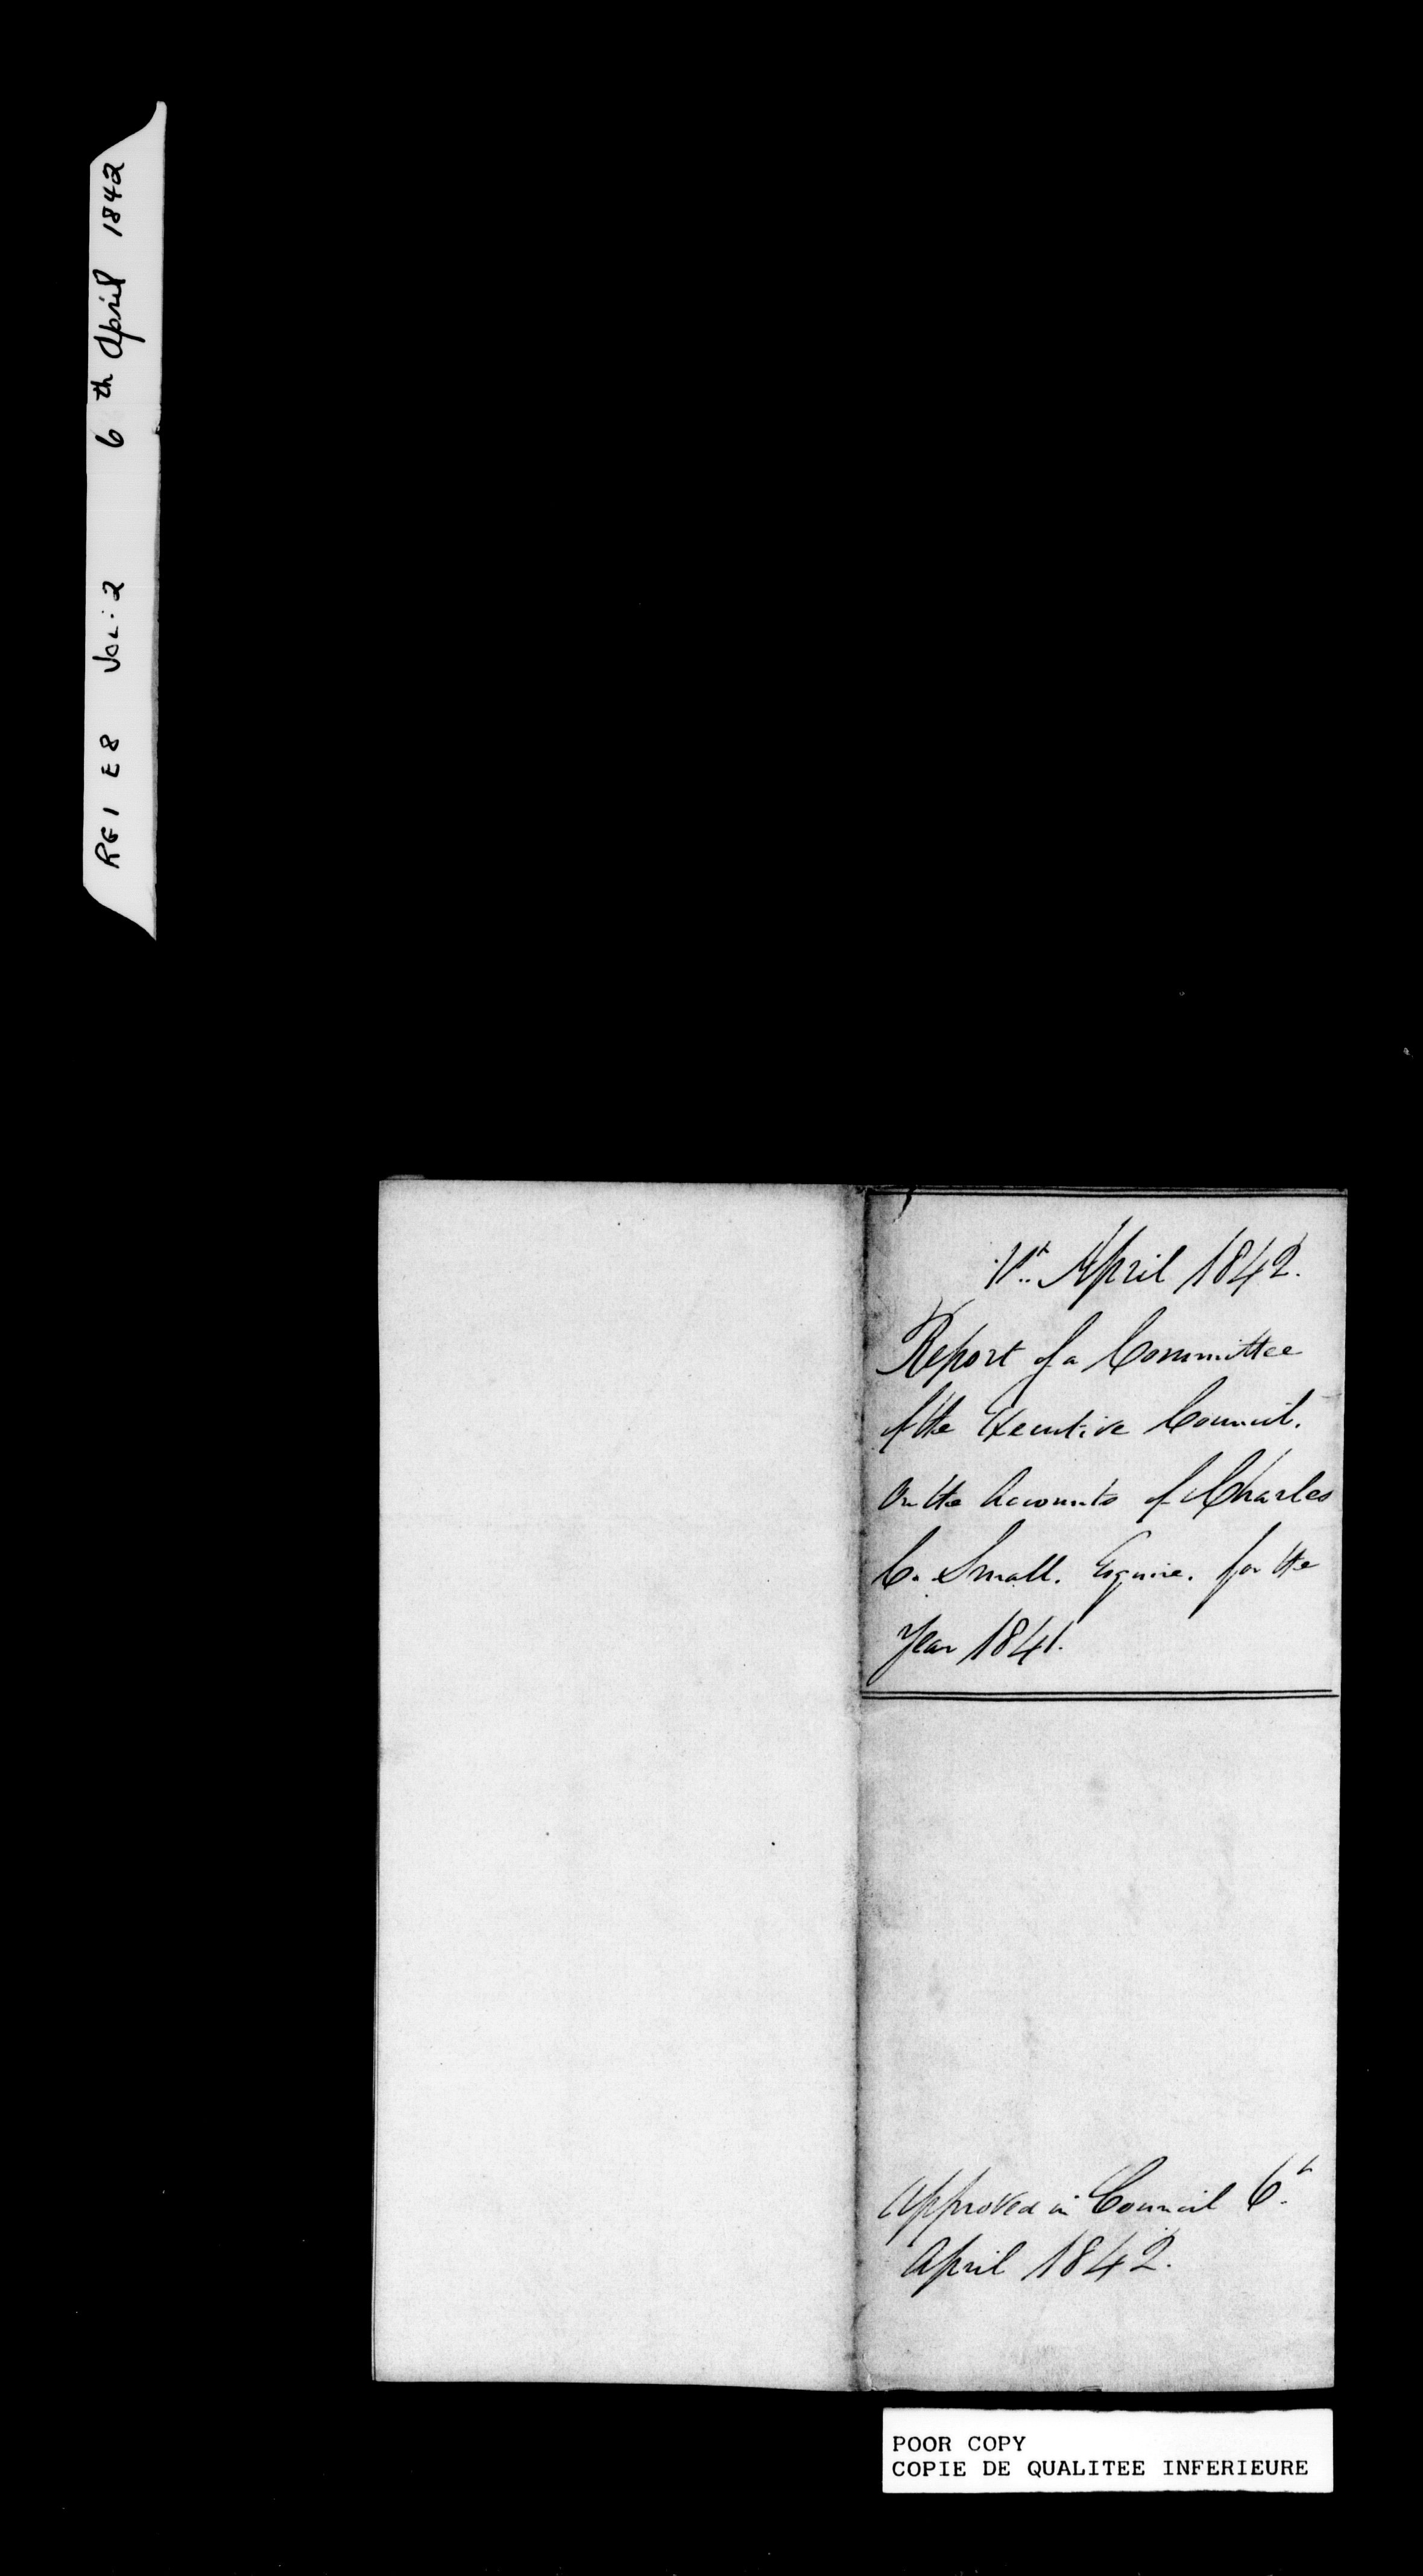 RG1 E8 VOL: 2 6th April 1842
April 1842.
Report of a Committee
of the Executive Council.
On the Accounts of Charles
C. Small. Esquire. for the
Year 1841.
Approved in Council 6th
April 1842.
POOR COPY
COPIE DE QUALITEE INFERIEURE